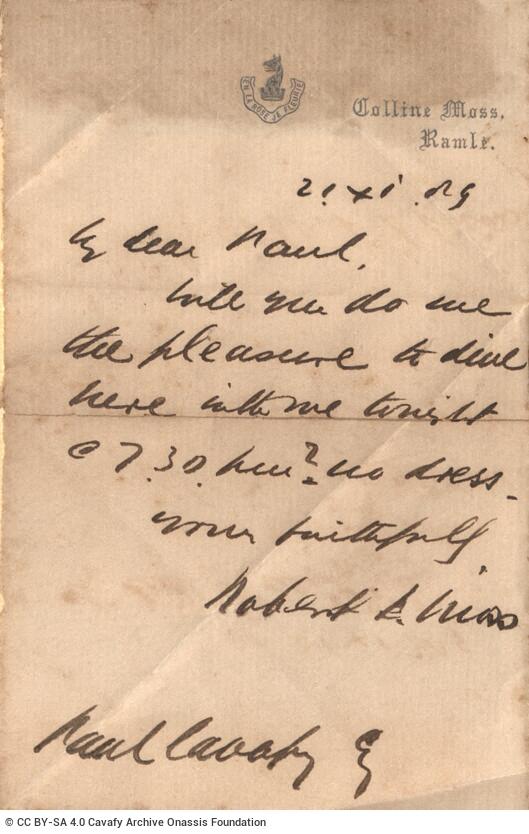 EN LA ROSE JE FLEURIE
Colline Moss,
Ramle.
21.XI.89
My dear Paul,
Will you do me
the pleasure to dine
here with me tonight
@ 7.30. p.m.? no dress-
yours faithfully
Robert Moss
Paul Cavafy Esq
© CC BY-SA 4.0 Cavafy Archive Onassis Foundation